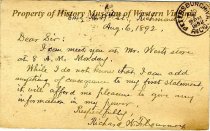 Property of History Museum of Western Vi
St., Richmond
Aug. 6, 1892.
Dear Sir:
I can meet you at Mr. Wests store
at 8 A.M. Monday.
While I do not know that I can add
anything of consequence to my past statement,
it will afford me pleasure to give any
information in my power.
Respectfully
Richard